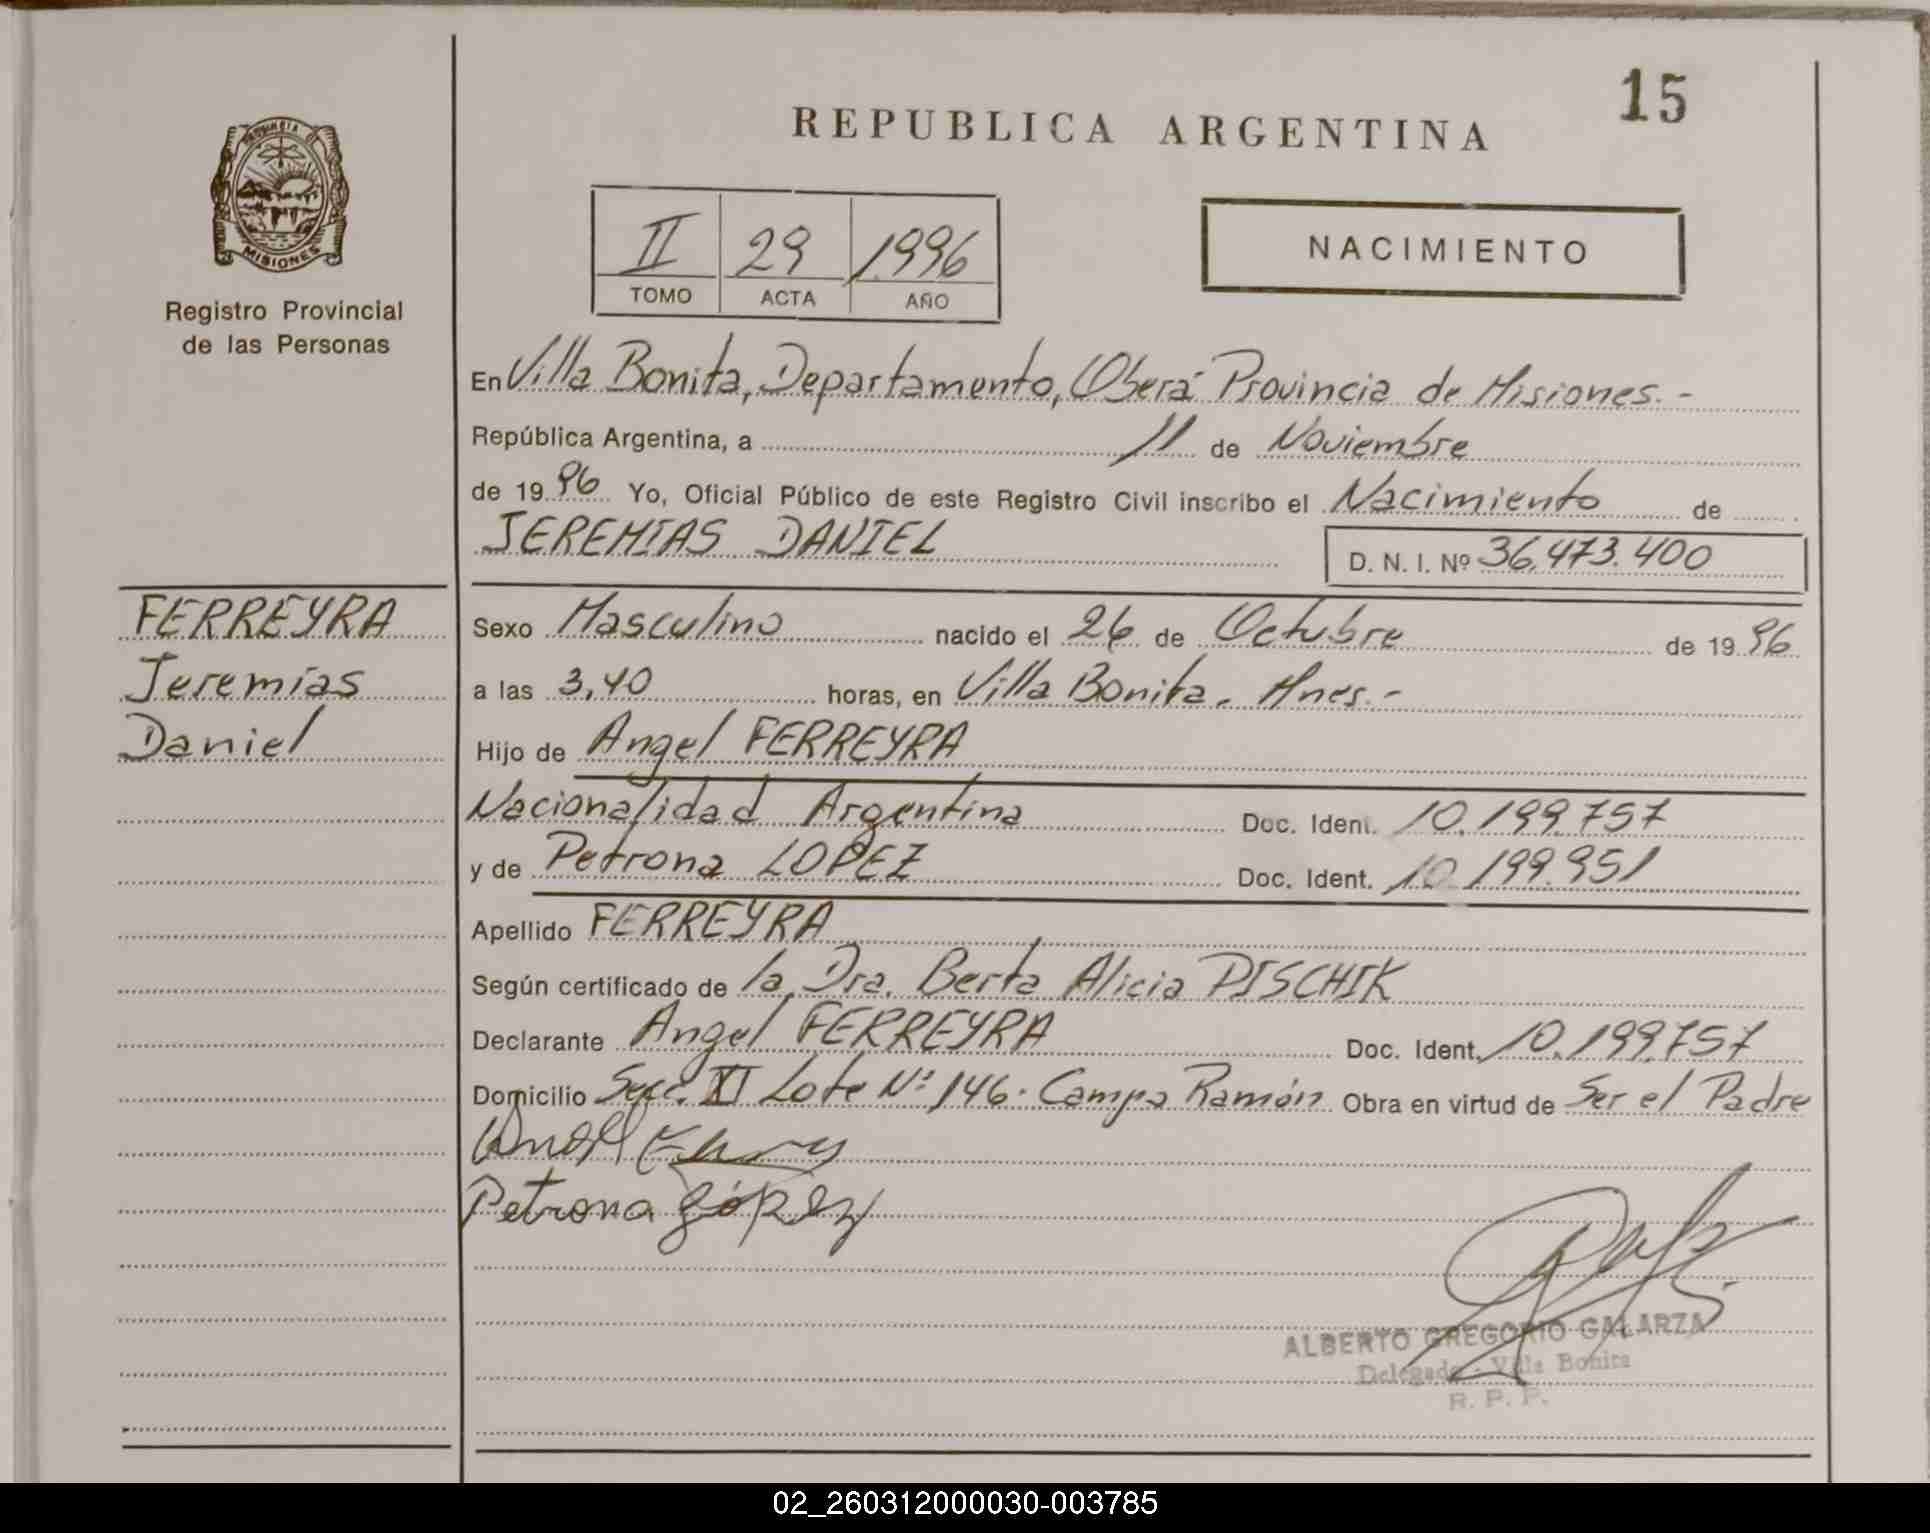 15
REPUBLICA ARGENTINA
PROVINCIA D
MISIONES
Registro Provincial
de las Personas
II 29 1996
TOMO ACTA AÑO
NACIMIENTO
En Villa Bonita, Departamento, Oberá Provincia de Misiones.-
República Argentina, a 11 de Noviembre
de 1996 Yo, Oficial Público de este Registro Civil inscribo el Nacimiento de
JEREMIAS DANIEL
D. N. I. Nº 36.473.400
FERREYRA
Jeremías
Daniel
Sexo Masculino nacido el 26 de Octubre de 1996
a las 3,40 horas, en Villa Bonita. Mnes.-
Hijo de Angel FERREYRA
Nacionalidad Argentina Doc. Ident. 10.199.757
y de Petrona LOPEZ Doc. Ident. 10.199.951
Apellido FERREYRA
Según certificado de la Dra. Berta Alicia PISCHIK
Declarante Angel FERREYRA Doc. Ident. 10.199.757
Domicilio Secc. XI Lote Nº 146. Campo Ramón Obra en virtud de Ser el Padre
Petrona López
ALBERTO GREGORIO GALARZA
Delegado - Villa Bonita
R. P. P.
02_260312000030-003785